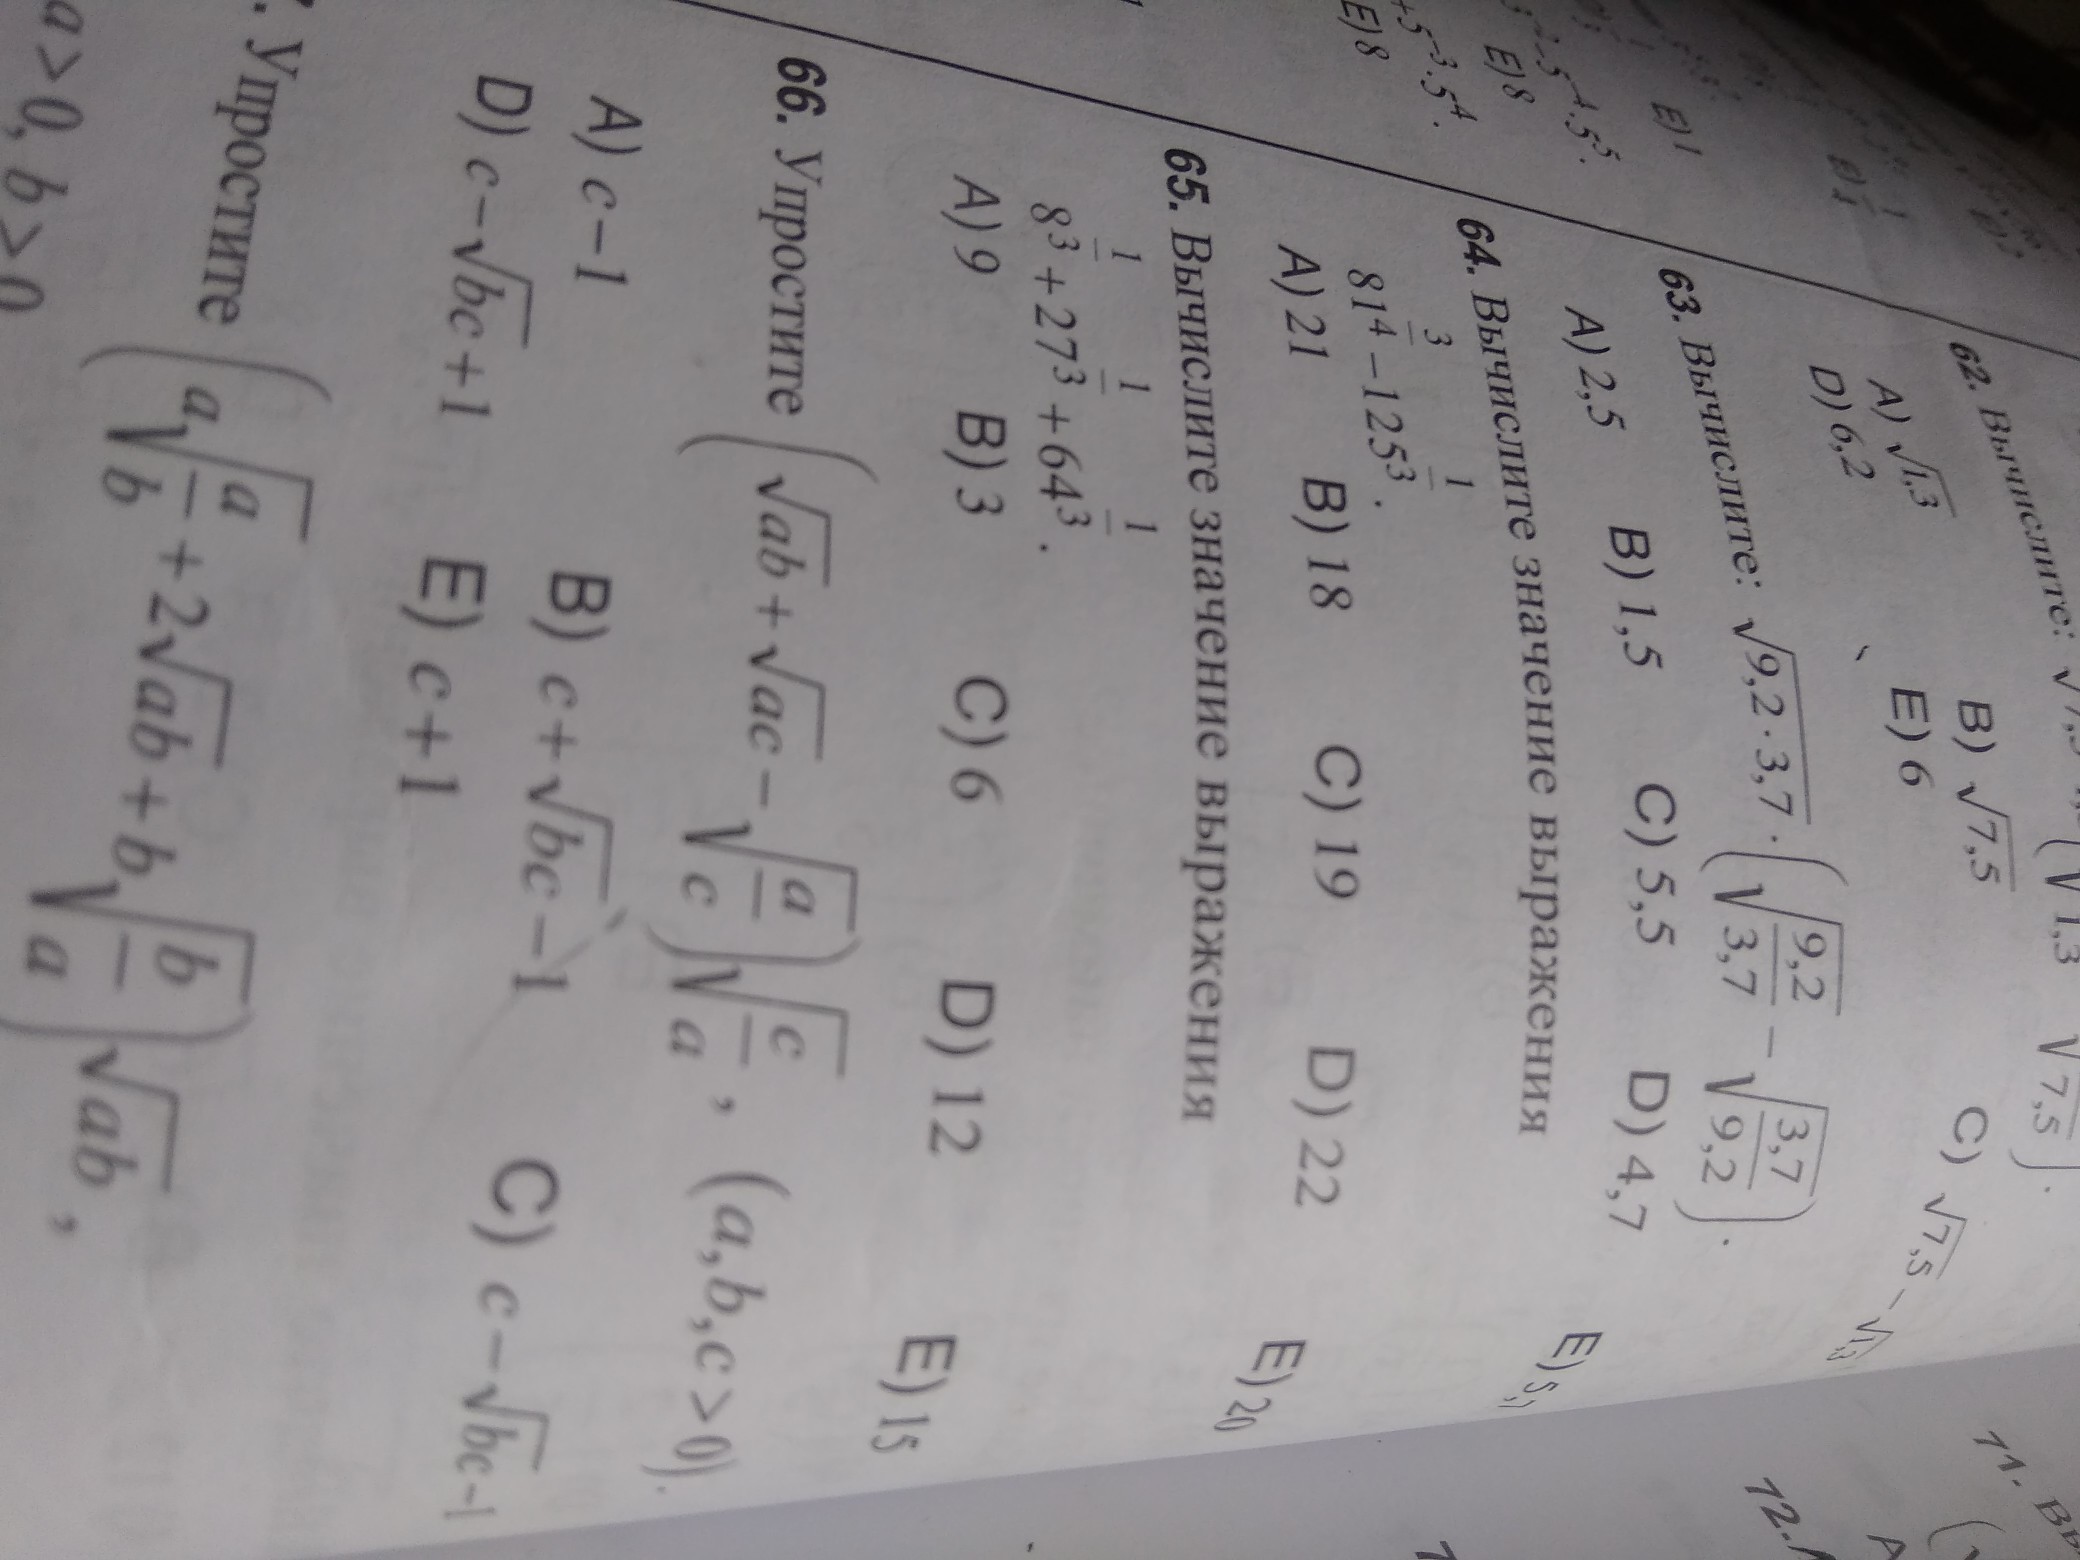 62. Вычислите:
A) √1,3 B) √7,5 C) √7,5 − √1,3
D) 6,2 E) 6
63. Вычислите: √(9,2 · 3,7) · (√(9,2/3,7) − √(3,7/9,2)).
A) 2,5 B) 1,5 C) 5,5 D) 4,7
64. Вычислите значение выражения
81^(3/4) − 125^(1/3).
A) 21 B) 18 C) 19 D) 22 E) 20
65. Вычислите значение выражения
8^(1/3) + 27^(1/3) + 64^(1/3).
A) 9 B) 3 C) 6 D) 12 E) 15
66. Упростите (√ab + √ac − √(a/c))√(c/a), (a,b,c > 0).
A) c−1 B) c+√bc−1 C) c−√bc−1
D) c−√bc+1 E) c+1
. Упростите (a√(a/b) + 2√ab + b√(b/a))√ab,
a > 0, b > 0
E) 1
E) 8
+5⁻³·5⁴.
E) 8
11.
12.